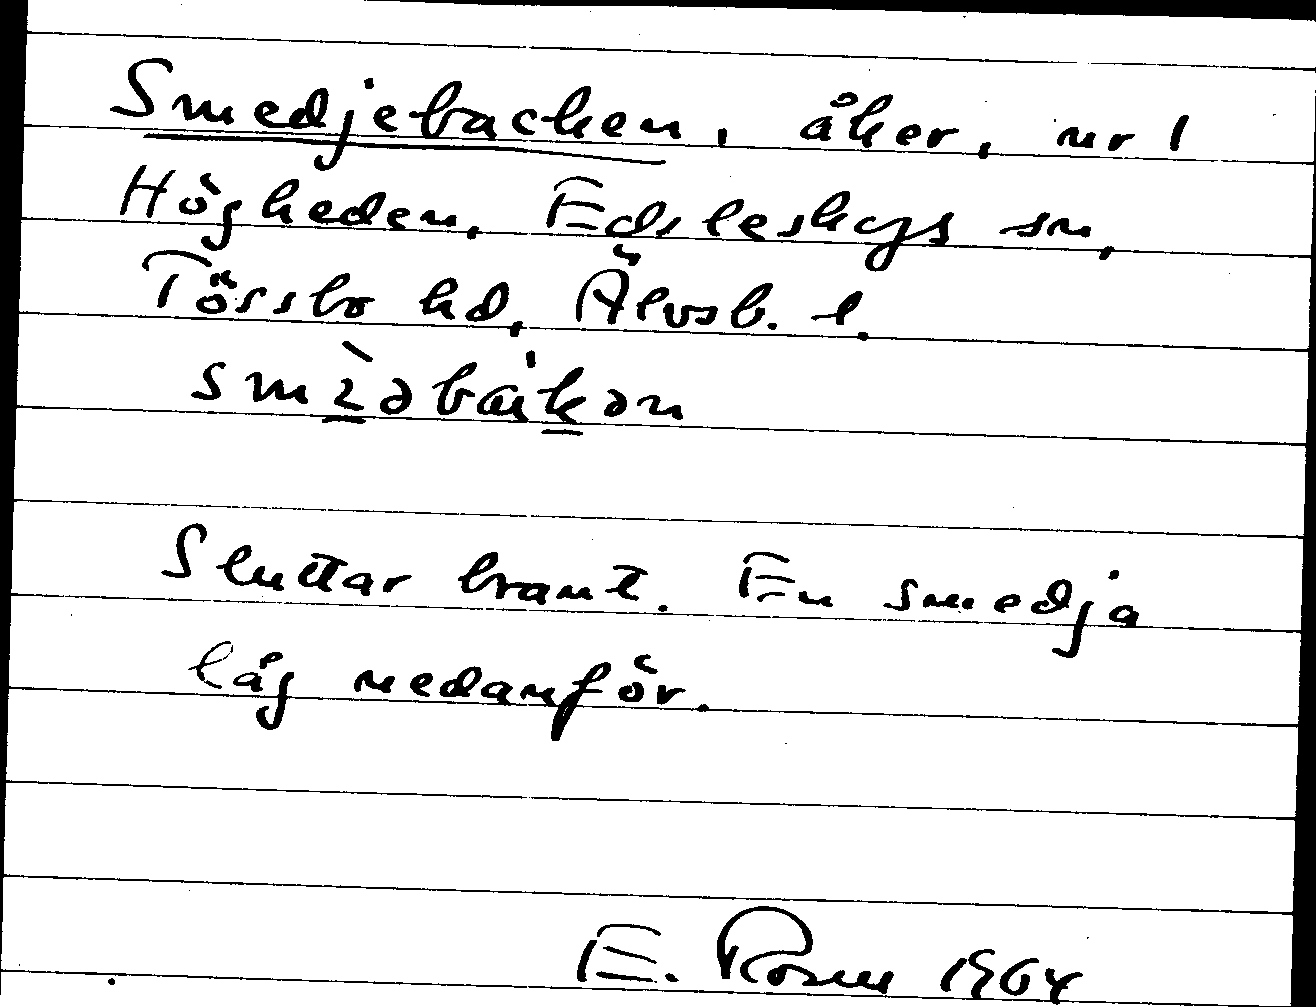 Smedjebacken, åker, nr 1
Högheden, Edsleskogs sn,
Tössbo hd, Älvsb. l.
Sluttar brant. En smedja
låg nedanför.
E. Rosen 1964